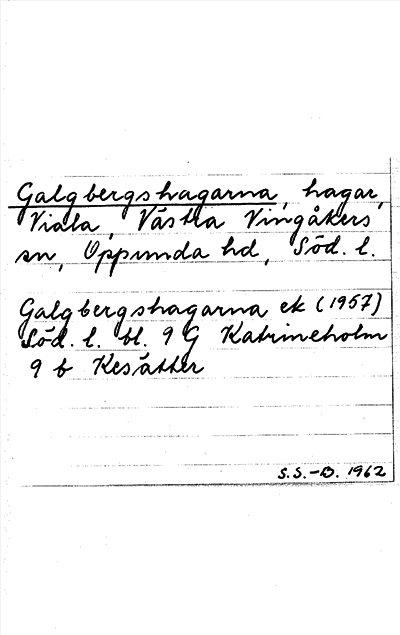 Galgbergshagarna, hagar,
Viala, Västra Vingåkers
sn, Oppunda hd, Söd. l.
Galgbergshagarna ek (1957)
Söd. l. bl. 9 G Katrineholm
9 b Kesätter
S.S.-B. 1962